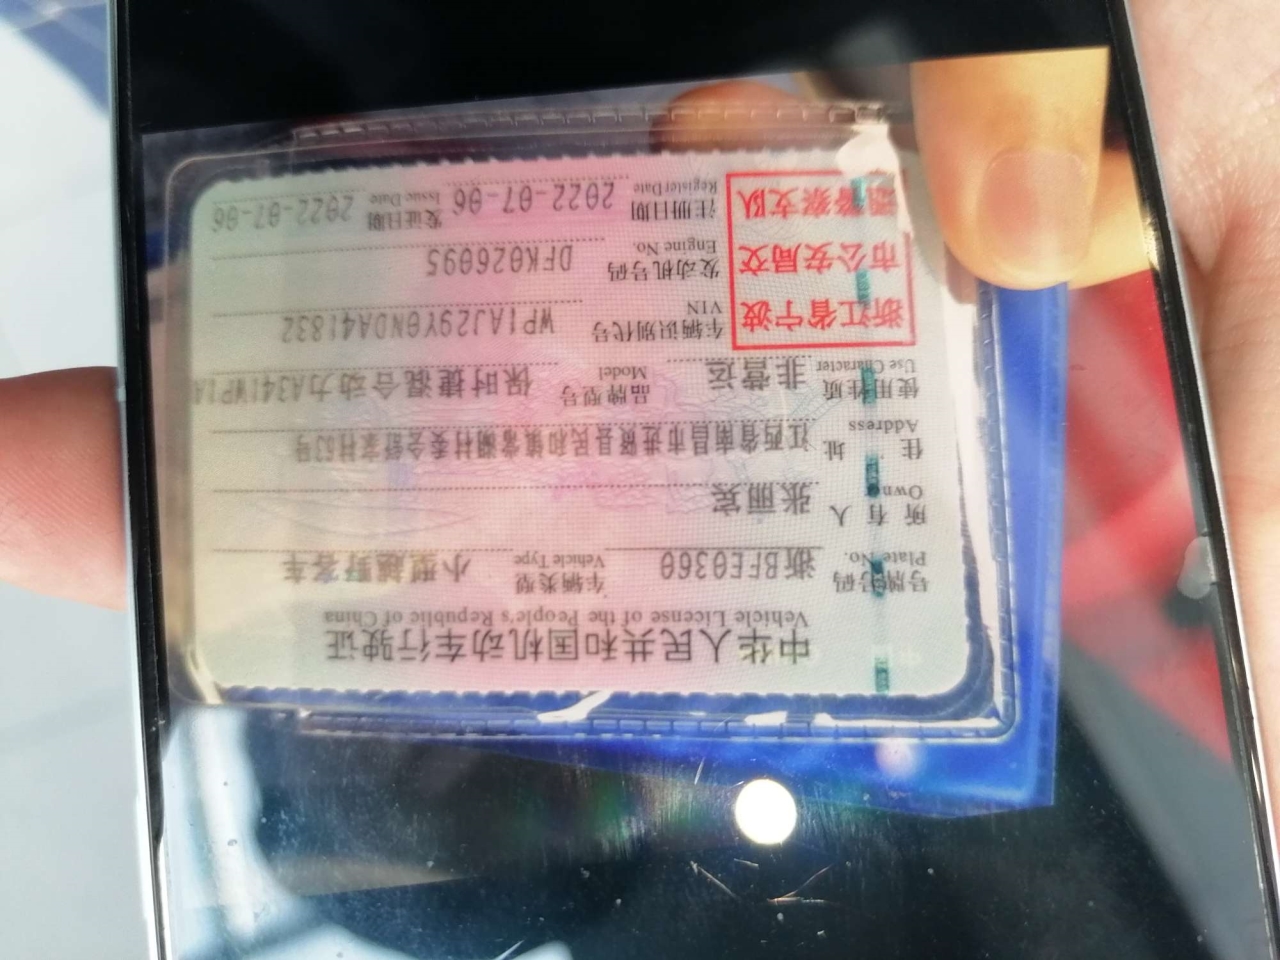 中华人民共和国机动车行驶证
Vehicle License of the People's Republic of China
号牌号码 浙BFE0360 车辆类型 小型越野客车
Plate No. Vehicle Type
所有人 张丽宾
Owner
住址 江西省南昌市进贤县民和镇常湖村委会舒家村53号
Address
使用性质 非营运 品牌型号 保时捷混合动力A341WP1A
Use Character Model
浙江省宁波
市公安局交
警察支队
车辆识别代号 WP1AJ29Y0NDA41832
VIN
发动机号码 DFK026095
Engine No.
注册日期 2022-07-06 发证日期 2022-07-06
Register Date Issue Date